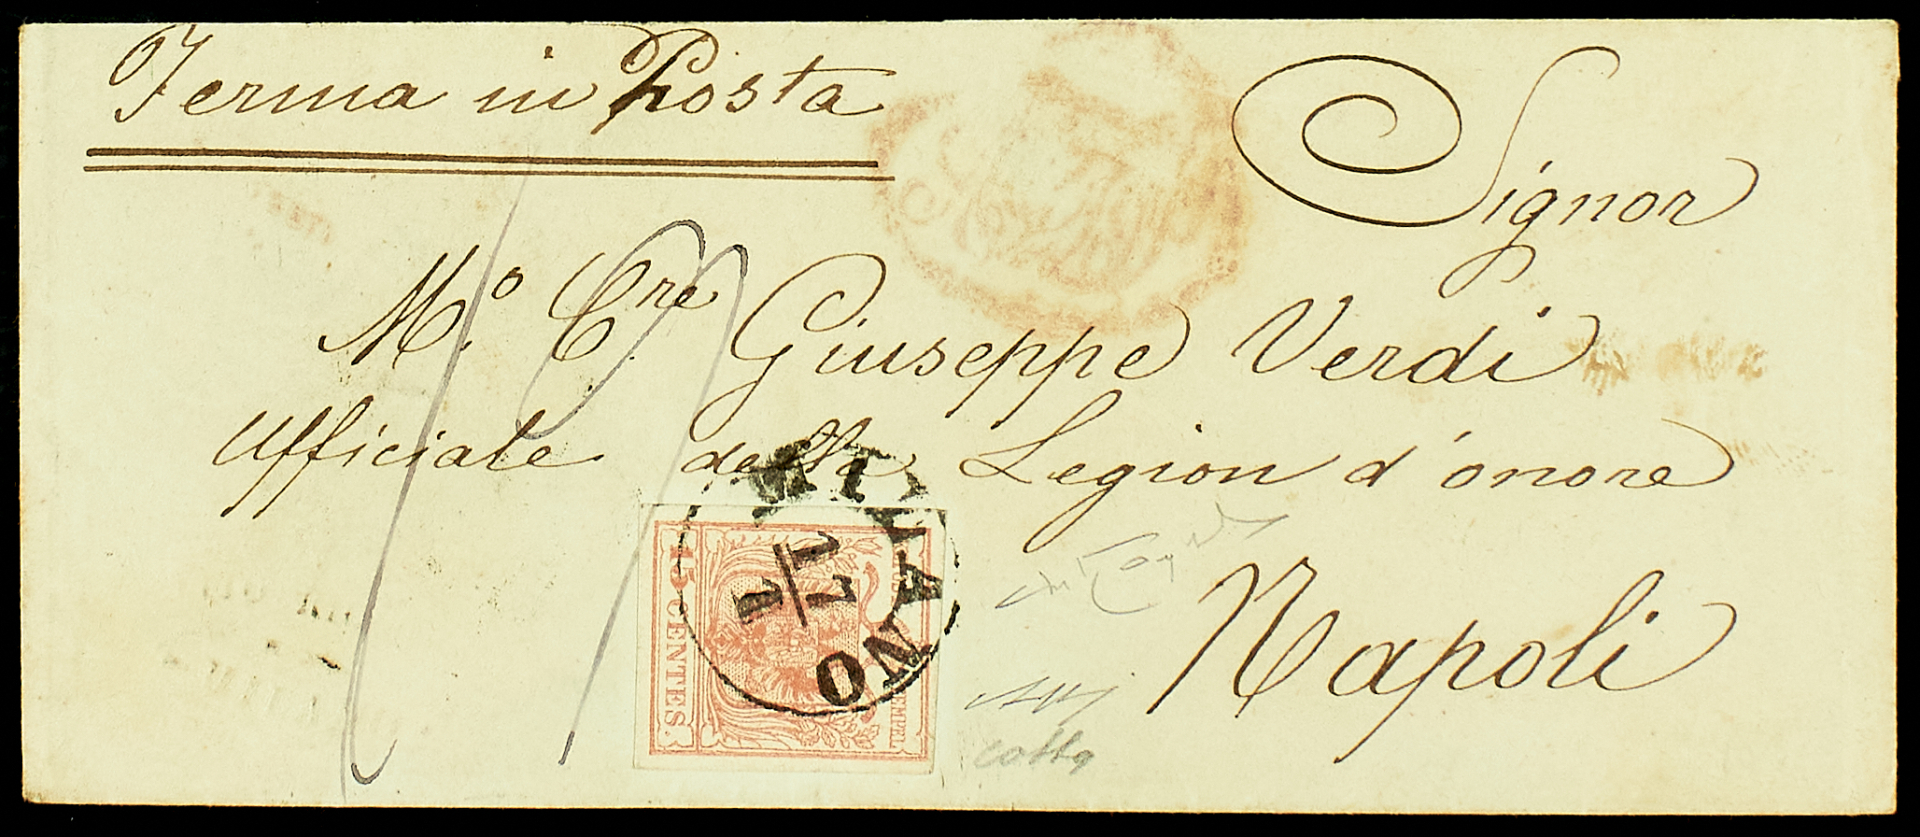 Ferma in Posta
Signor
M.º C.re Giuseppe Verdi
Ufficiale della Legion d'onore
Napoli
MILANO
17
1
15 CENTES.
STEMPEL
cotta